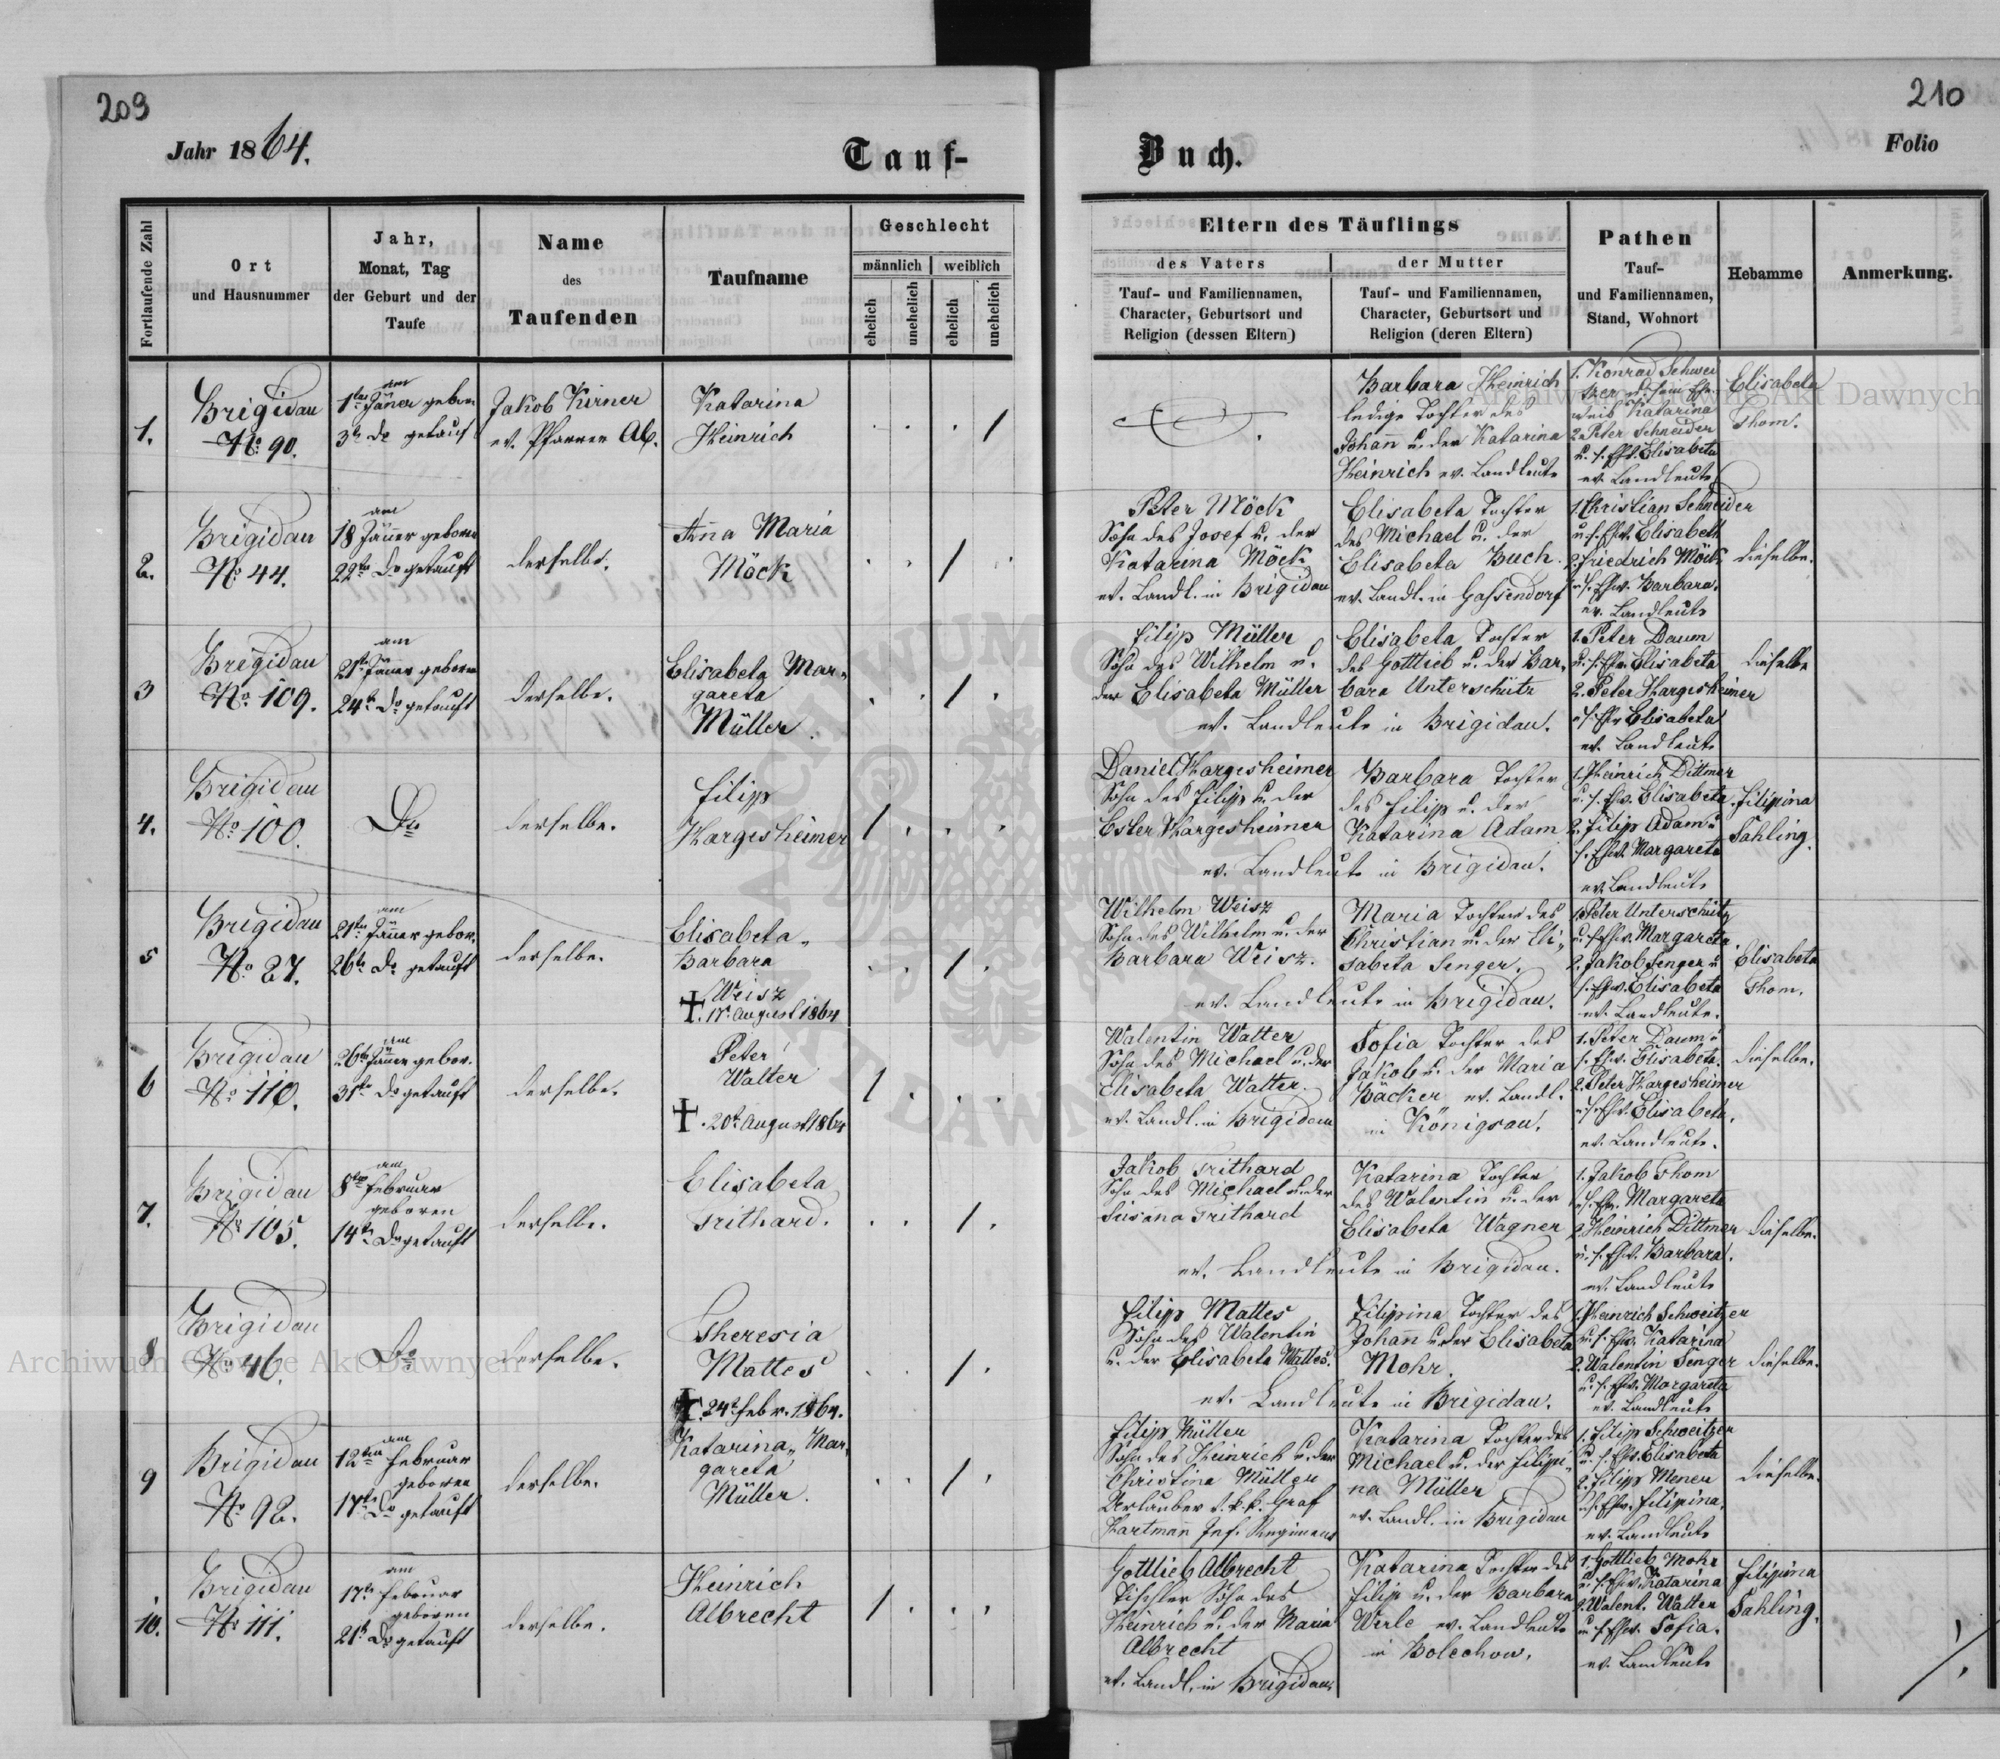 209
Jahr 1864.
Tauf-
Fortlaufende Zahl
Ort
und Hausnummer
Jahr,
Monat, Tag
der Geburt und der
Taufe
Name
des
Taufenden
Taufname
Geschlecht
männlich
weiblich
ehelich
unehelich
ehelich
unehelich
1.
Brigidau
No 90.
am
1ten Jäner gebor
3t do getauft
Jakob Kirner
ev. Pfarrer
Katarina
Heinrich
2.
Brigidau
No 44.
am
18 Jäner geboren
22ten Do getauft
derselbe.
Anna Maria
Möck
3
Brigidau
No 109.
am
21t Jäner geboren
24t Do getauft
derselbe.
Elisabeta Mar-
gareta
Müller.
4.
Brigidau
No 100.
Do
derselbe.
Filipp
Hargesheimer
5
Brigidau
No 27.
am
21ten Jäner gebor.
26t Do getauft
derselbe.
Elisabeta
Barbara
Weisz
17t August 1864
6
Brigidau
No 110.
am
26ten Jäner gebor.
31ten Do getauft
derselbe.
Peter
Walter
20t August 1864
7.
Brigidau
No 105.
am
8ten Februar
geboren
14ten Do getauft
derselbe.
Elisabeta
Trithard.
8
Brigidau
No 46.
Do
derselbe.
Theresia
Mattes
24t Febr. 1864.
9
Brigidau
No 92.
am
12ten Februar
geboren
17t Do getauft
derselbe.
Katarina Mar-
gareta
Müller.
10.
Brigidau
No 111.
am
17t Februar
geboren
21t Do getauft
derselbe.
Heinrich
Albrecht
210
Buch.
Folio
Eltern des Täuflings
des Vaters
Tauf- und Familiennamen,
Character, Geburtsort und
Religion (dessen Eltern)
der Mutter
Tauf- und Familiennamen,
Character, Geburtsort und
Religion (deren Eltern)
Pathen
Tauf-
und Familiennamen,
Stand, Wohnort
Hebamme
Anmerkung.
Barbara Heinrich
ledige Tochter des
Johann u. der Katarina
Heinrich ev. Landleute
1. Konrad Schwei
tzer u. sein Eh
weib Katarina
2. Peter Schneider
u. s. Ehw. Elisabeta
ev. Landleute
Elisabeta
Thom.
Peter Möck
Sohn des Josef u. der
Katarina Möck
ev. Landl. in Brigidau
Elisabeta Tochter
des Michael u. der
Elisabeta Buch.
ev. Landl. in Gassendorf
1. Christian Schneider
u. s. Ehw. Elisabeth
2. Friedrich Möck
u. s. Ehw. Barbara.
ev. Landleute
dieselbe.
Filipp Müller
Sohn des Wilhelm u.
der Elisabeta Müller
Elisabeta Tochter
des Gottlieb u. der Bar-
bara Unterschütz
ev. Landleute in Brigidau.
1. Peter Daum
u. s. Ehw. Elisabeta
2. Peter Hargesheimer
u. s. Ehw Elisabeta
ev. Landleute
dieselbe
Daniel Hargesheimer
Sohn des Filipp u. der
Ester Hargesheimer
Barbara Tochter
des Filipp u. der
Katarina Adam
ev. Landleute in Brigidau.
1. Heinrich Dittmer
u. s. Ehw. Elisabeta
2. Filipp Adam u
s. Ehw. Margareta
ev. Landleute
Filipina
Sahling.
Wilhelm Weisz
Sohn des Wilhelm u. der
Barbara Weisz.
Maria Tochter des
Christian u. der Eli-
sabeta Senger.
ev. Landleute in Brigidau.
1. Peter Unterschütz
u. s. Ehw. Margareta.
2. Jakob Senger u
s. Ehw. Elisabeta
ev. Landleute.
Elisabeta
Thom.
Walentin Walter
Sohn des Michael u. der
Elisabeta Walter.
ev. Landl. in Brigidau
Sofia Tochter des
Jakob u. der Maria
Bäcker ev. Landl.
in Königsau.
1. Peter Daum u
s. Ehw. Elisabeta.
2. Peter Hargesheimer
u. s. Ehw. Elisabeta.
ev. Landleute.
dieselbe.
Jakob Trithard
Sohn des Michael u. der
Susana Trithard
Katarina Tochter
des Walentin u. der
Elisabeta Wagner
ev. Landleute in Brigidau.
1. Jakob Thom
u. s. Ehw. Margareta
2. Heinrich Dittmer
u. s. Ehw. Barbara.
ev. Landleute
dieselbe.
Filipp Mattes
Sohn des Walentin
u. der Elisabeta Mattes.
Filipina Tochter des
Johann u. der Elisabeta
Mohr.
ev. Landleute in Brigidau.
1. Heinrich Schweitzer
u. s. Ehw. Katarina
2. Walentin Senger
u. s. Ehw. Margareta
ev. Landleute
dieselbe.
Filipp Müller
Sohn des Heinrich u. der
Christina Müller
Urlauber d. k. k. Graf
Hartmann Inf. Regiments
Katarina Tochter des
Michael u. der Filipi-
na Müller
ev. Landl. in Brigidau
1. Filipp Schweitzer
u. s. Ehw. Elisabeta
2. Filipp
u. s. Ehw. Filipina.
ev. Landleute
dieselbe.
Gottlieb Albrecht
Tischler Sohn des
Heinrich u. der Maria
Albrecht
ev. Landl. in Brigidau.
Katarina Tochter des
Filipp u. der Barbara
Werle ev. Landleute
in Bolechow.
1. Gottlieb Mohr
u. s. Ehw. Katarina
2. Walent. Walter
u. s. Ehw. Sofia.
ev. Landleute
Filippina
Sahling.
Archiwum Główne Akt Dawnych
Archiwum Główne Akt Dawnych